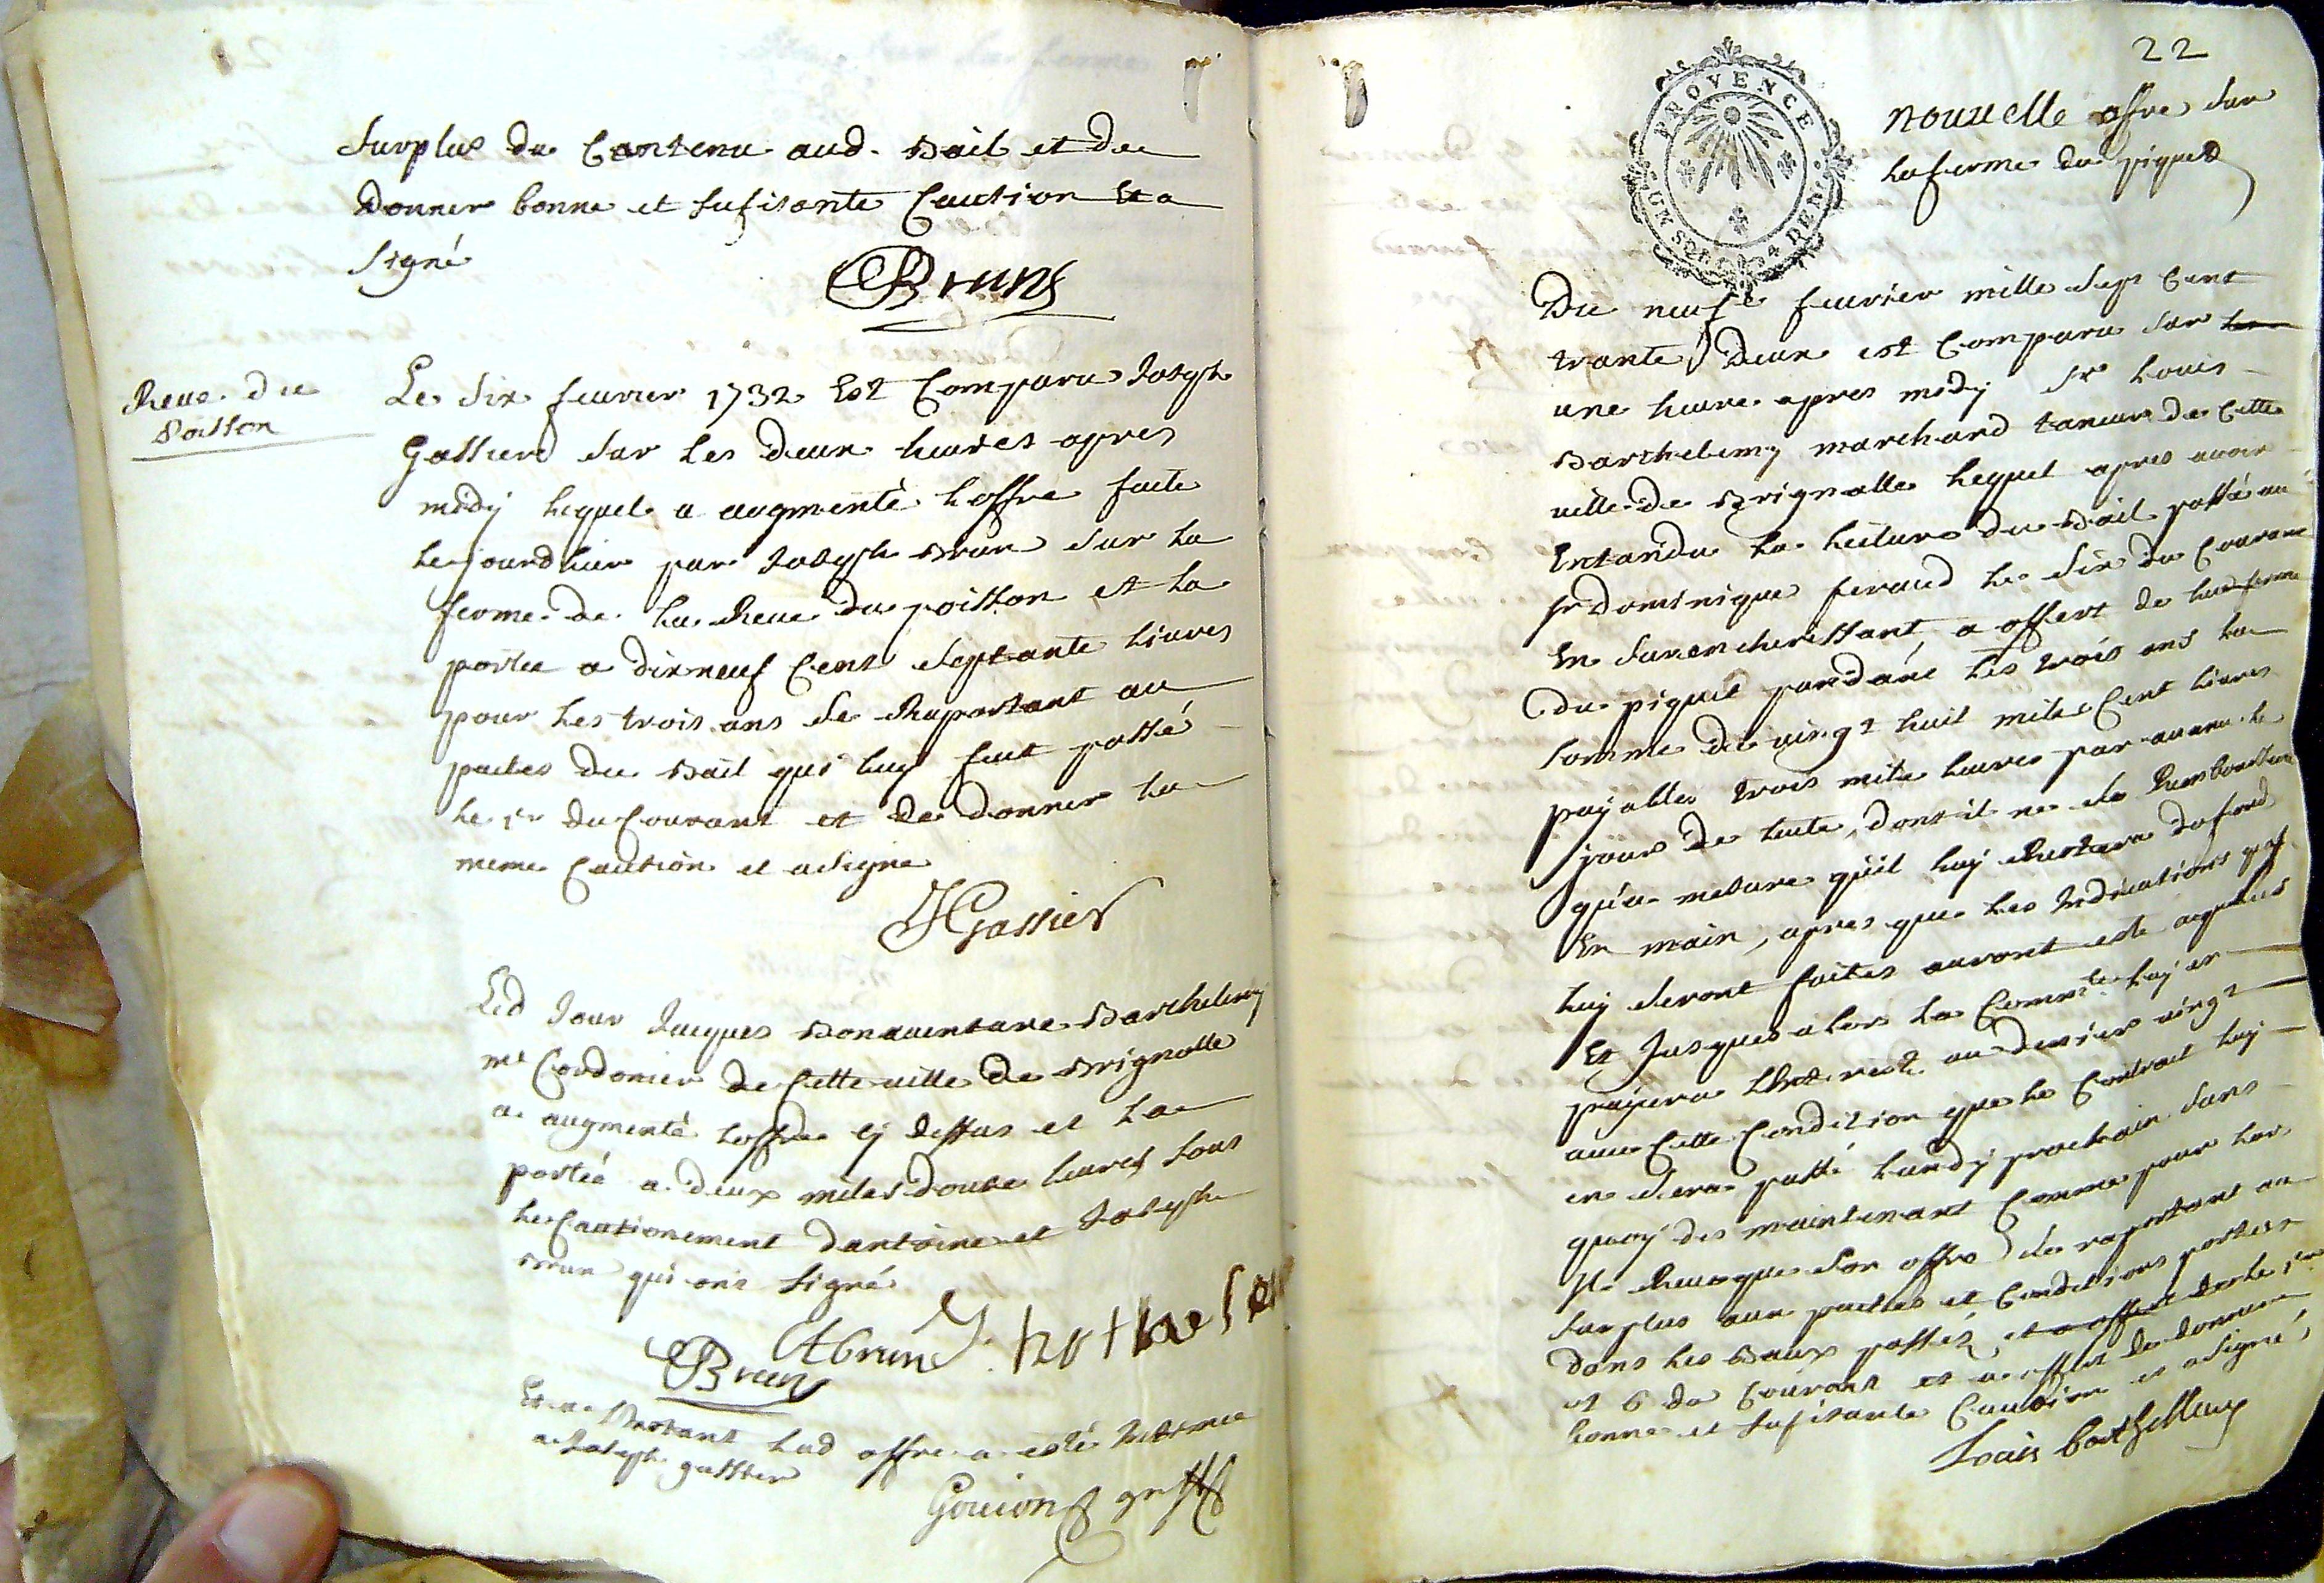 Surplus du Contenu aud. Bail et de
donner bonne et sufisante Caution Et a
signé
Brun
Reue du
Poisson
Le six feurier 1732 Est Comparu Joseph
Gassier sur les deux heures apres
midy lequel a augmenté l'offre faite
lejourdhier par Joseph Brun sur la
ferme de la Reue du poisson et la
portée a dixneuf Cent Septante liures
pour les trois ans se Raportant au
pactes du Bail qui luy fut passé
le 1er du Courant et de donner la
meme Caution et a signe
JGassier
Led Jour Jacques Bonauenture Barthelemy
me Cordonier de Cette uille de Brignolle
a augmenté loffre cy dessus et la
portée a deux milles douse liures sous
le Cautionement dantoine et Joseph
Brun qui ont signé
ABrun
Brun
Et a linstant lad offre a esté Intimée
a Joseph gassier
Gouion greff
22
PROVENCE
UN SOL 4 DENI.
nouuelle offre sur
la ferme du piquet
Du neufe feurier mille sept Cent
trante deux est Comparu sur
une heure apres midy Sr Louis
Barthelemy marchand taneur de Cette
uille de Brignolle lequel apres auoir
Entandu la lecture du Bail passé au
Sr dominique feraud le six du Courant
En surencherissant, a offert de lad ferme
du piquet pandant les trois ans la
somme de uingt huit mille Cent liures
payables trois mille liures par auance le
jour de lacte, dont il ne se Remboursera
qu'a mesure qu'il luy Restera du fond
En main, apres que les Indications qui
luy seront faites auront esté aquités
Et Jusques alors la Commté luy en
payera Linterest au denier uingt
auec Cette Condition que le Contrat luy
en sera passé lundy prochain sans
quoy des maintenant Comme pour lors
Il Reuoque son offre se raportant au
surplus aux pactes et Conditions portées
dans les Baux passés, et a offert des le 1er
et 6 du Courant et a offert de donner
bonne et sufisante Caution et a signé,
Louis barthellemy